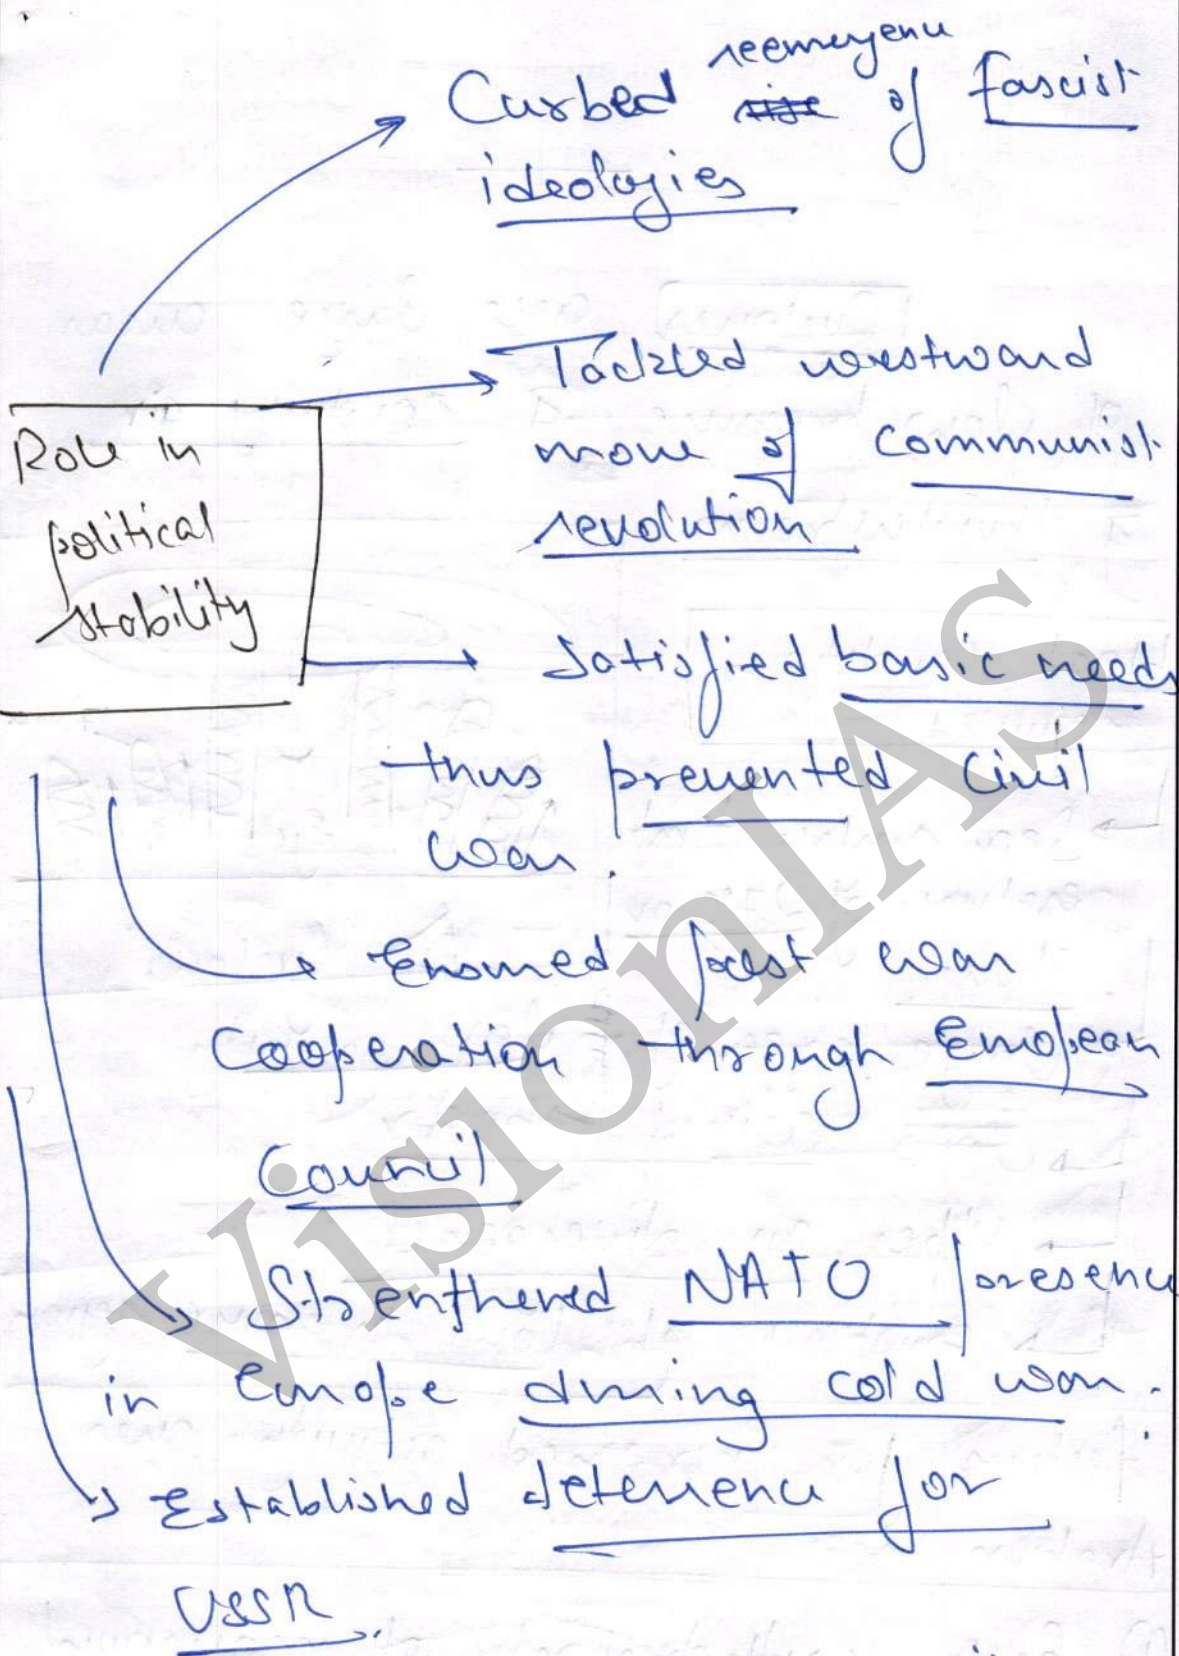 Curbed ~~rise~~ reemergence of fascist
ideologies
Tackled westward
move of communist
revolution
Role in
political
stability
Satisfied basic needs
thus prevented civil
war.
Ensured post war
Cooperation through European
Council
Strenthened NATO presence
in Europe during cold war.
Established deterrence for
USSR.
VisionIAS